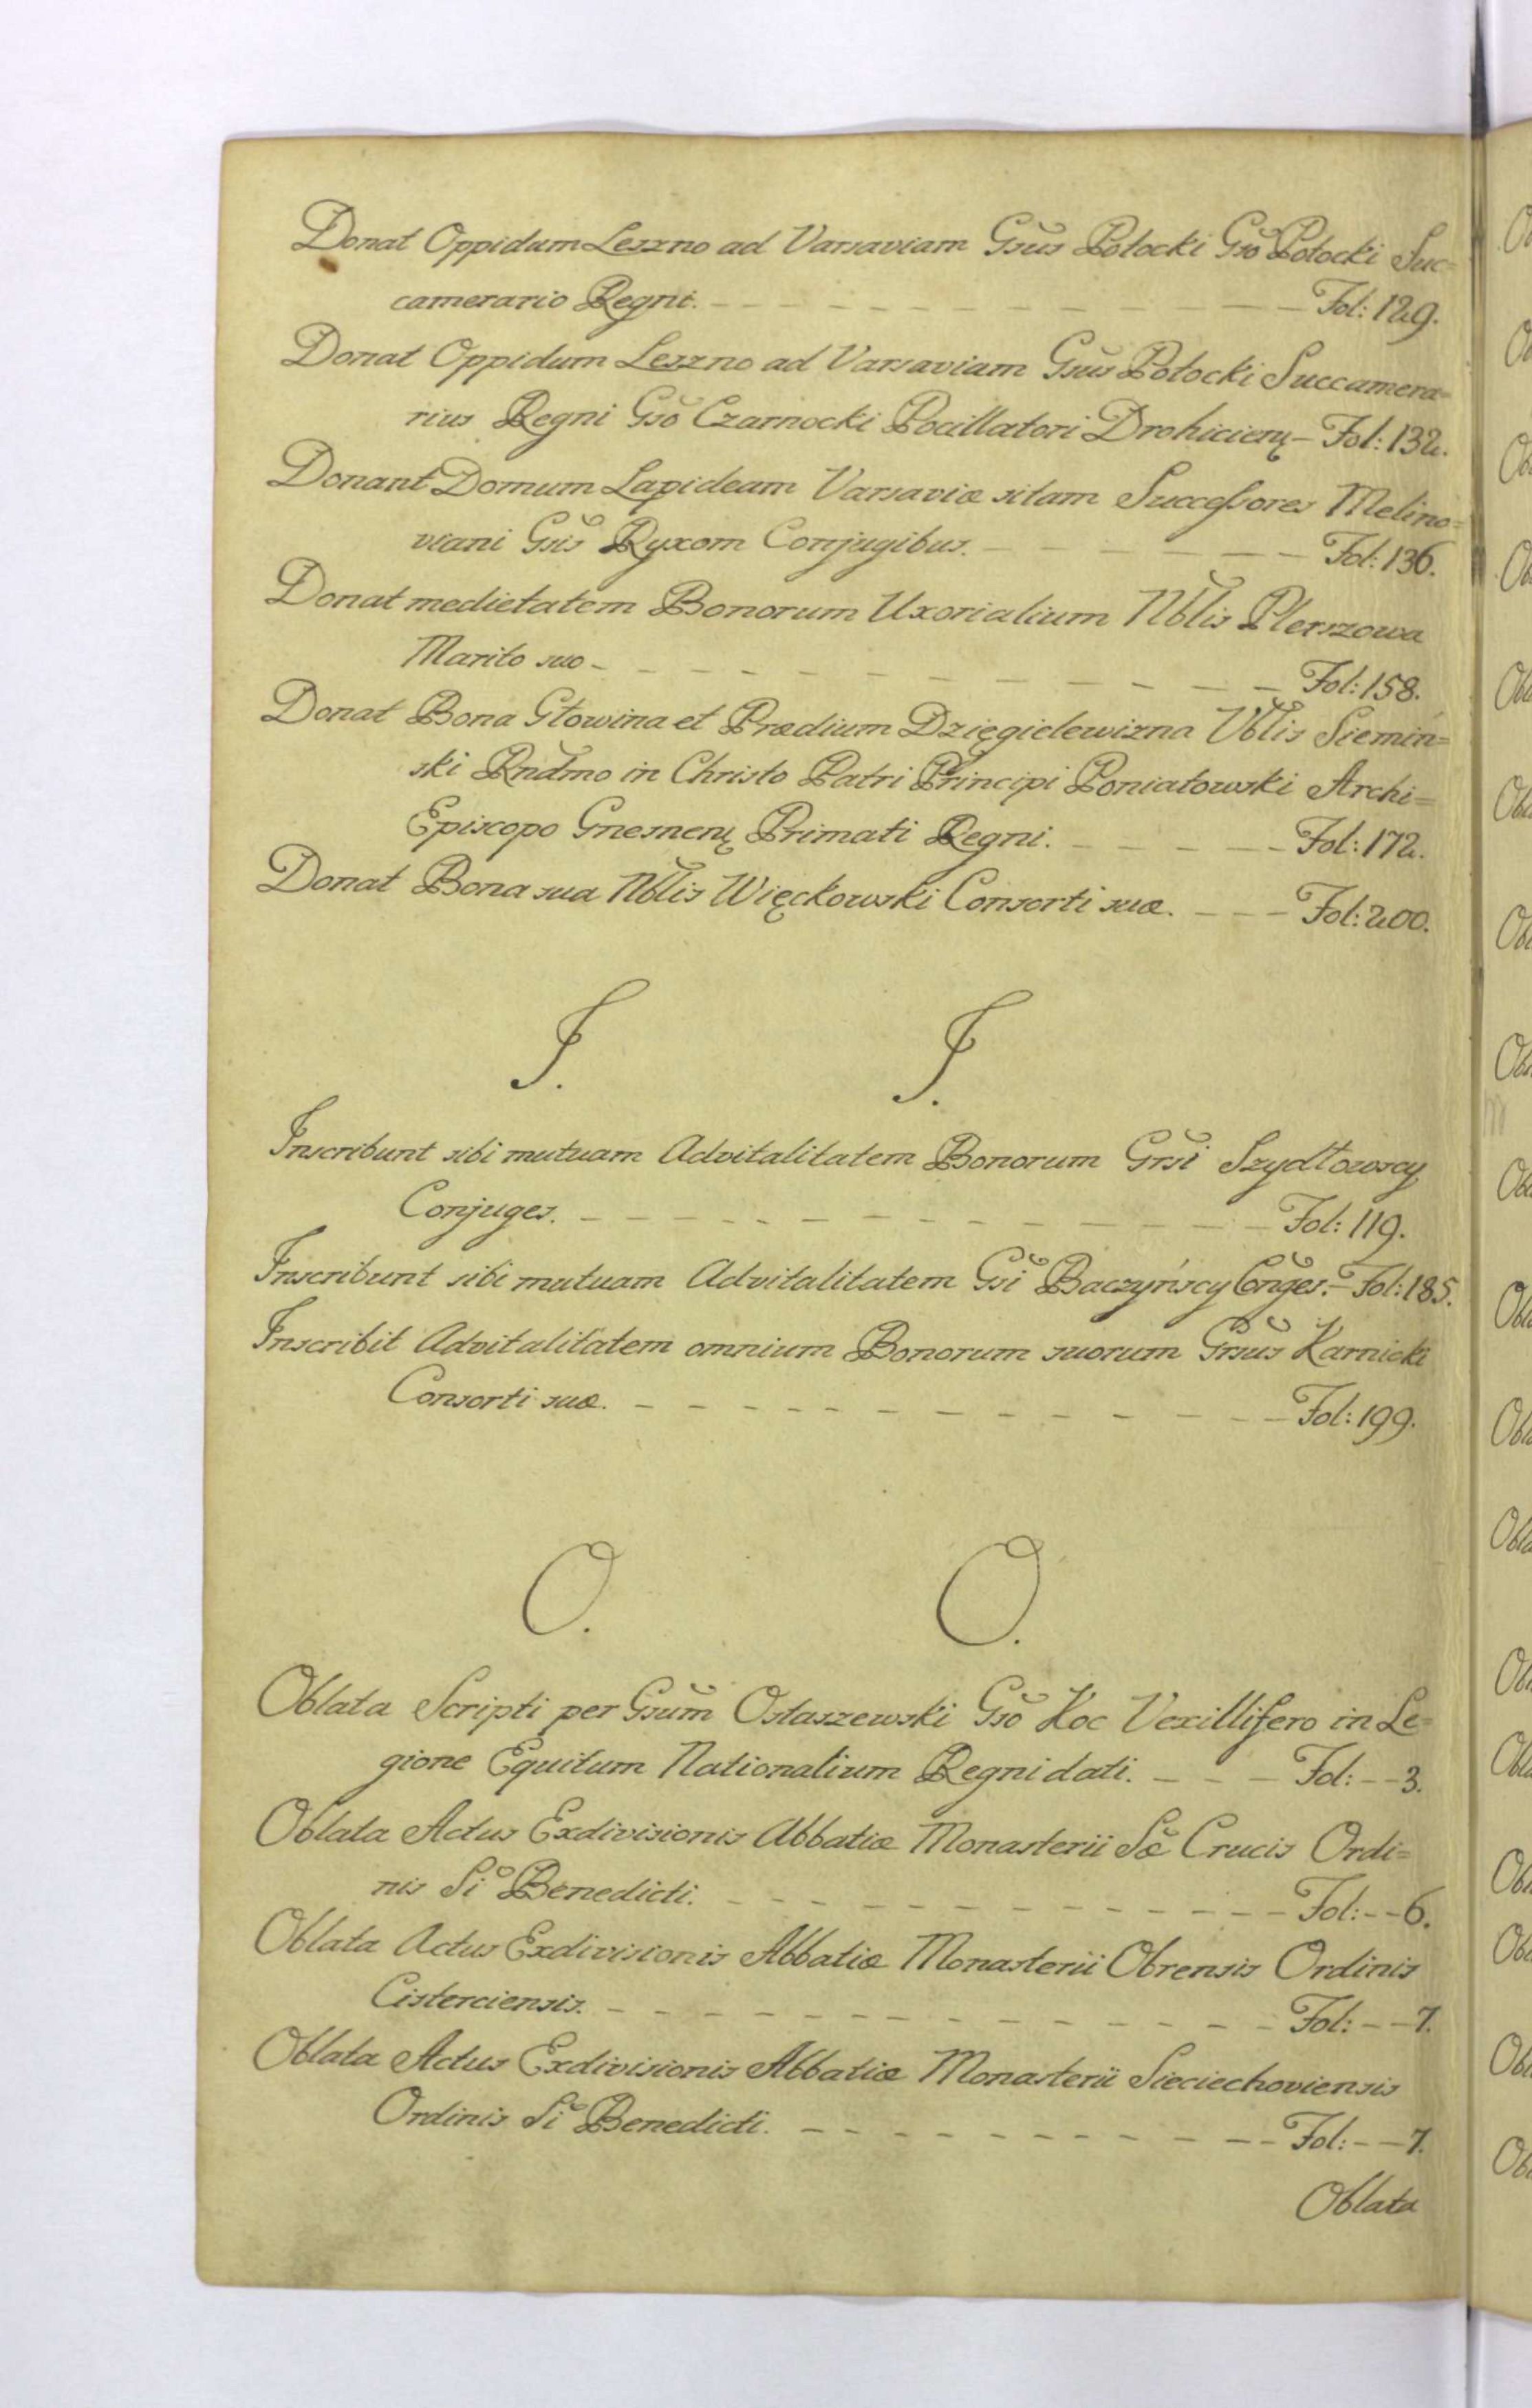 Donat Oppidum Leszno ad Varsaviam Gsus Potocki Gso Potocki Suc=
camerario Regni. Fol: 129.
Donat Oppidum Leszno ad Varsaviam Gsus Potocki Succamera=
rius Regni Gso Czarnocki Pocillatori Drohicień – Fol: 132.
Donant Domum Lapideam Varsaviæ sitam Successores Melino=
viani Gsis Ryxom Conjugibus. Fol: 136.
Donat medietatem Bonorum Uxorialium Nblis Plerszowa
Marito suo Fol: 158.
Donat Bona Głowina et Prædium Dzięgielewizna Nblis Siemiń=
ski Rndmo in Christo Patri Principi Poniatowski Archi=
Episcopo Gnesnen Primati Regni. Fol: 172.
Donat Bona sua Nblis Więckowski Consorti suæ. Fol: 200.
I. I.
Inscribunt sibi mutuam Advitalitatem Bonorum Grsi Szydłowscy
Conjuges. Fol: 119.
Inscribunt sibi mutuam Advitalitatem Gsi Baczyńscy Conges. Fol: 185.
Inscribit Advitalitatem omnium Bonorum suorum Grsus Karnicki
Consorti suæ. Fol: 199.
O. O.
Oblata Scripti per Gsum Ostaszewski Gso Koc Vexillifero in Le=
gione Equitum Nationalium Regni dati. Fol: 3.
Oblata Actus Exdivisionis Abbatiæ Monasterii Sæ Crucis Ordi=
nis Si Benedicti. Fol: 6.
Oblata Actus Exdivisionis Abbatiæ Monasterii Obrensis Ordinis
Cisterciensis. Fol: 7.
Oblata Actus Exdivisionis Abbatiæ Monasterii Sieciechoviensis
Ordinis Si Benedicti. Fol: 7.
Oblata